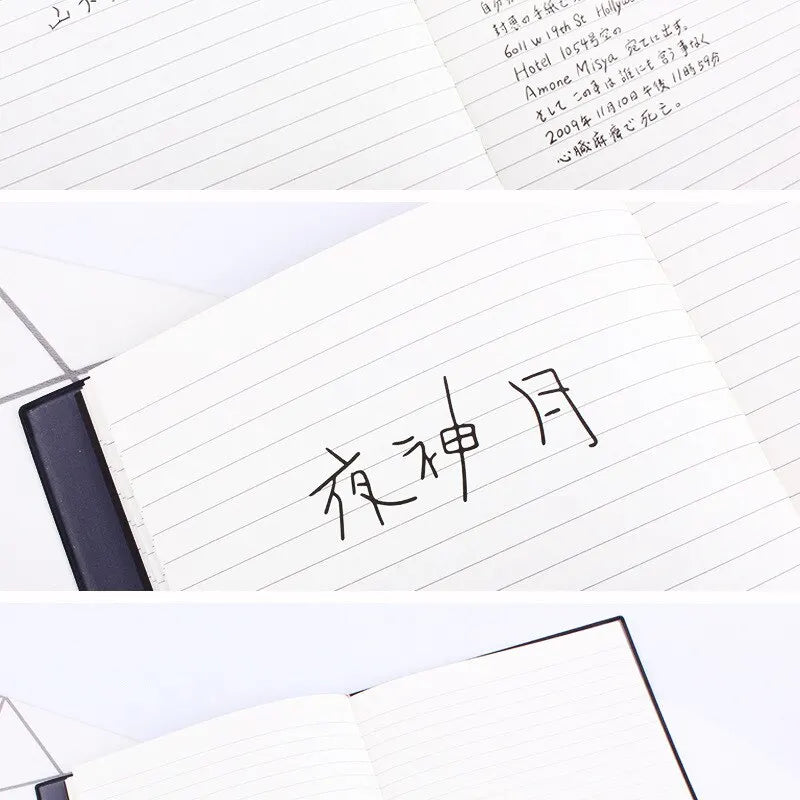 山
自分
封意の手紙で
6011 W 19th St Hollyw
Hotel 1054号室の
Amone Misya 宛てに出す。
そして この事は 誰にも言う事なく
2009年 11月10日午後 11時59分
心臓麻痺で 死亡。
夜神 月